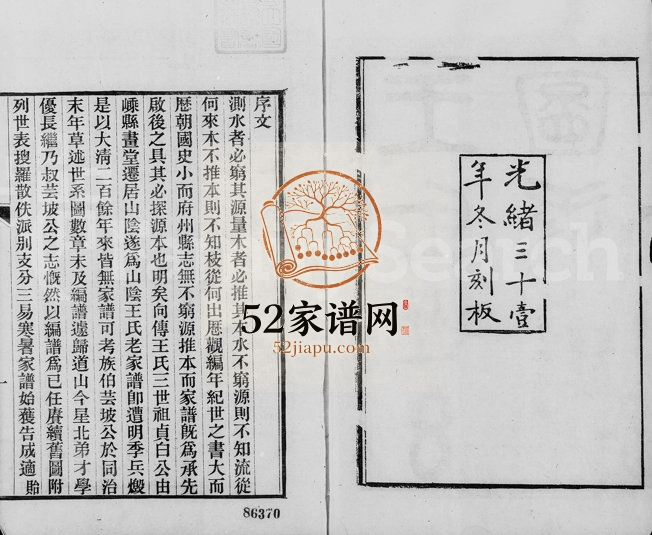 光緒三十壹
年冬月刻板
序文
測水者必窮其源量木者必推其本水不窮源則不知流從
何來木不推本則不知枝從何出歷觀編年紀世之書大而
歷朝國史小而府州縣志無不窮源推本而家譜既為承先
啟後之具其必探源本也明矣向傳王氏三世祖貞白公由
嵊縣畫堂遷居山陰遂為山陰王氏老家譜卽遭明季兵燬
是以大清二百餘年來皆無家譜可考族伯芸坡公於同治
末年草述世系圖數章未及編譜遽歸道山今星北弟才學
優長繼乃叔芸坡公之志慨然以編譜為已任賡續舊圖附
列世表搜羅散佚派別支分三易寒暑家譜始獲告成適貽
52家谱网
52jiapu.com
86370